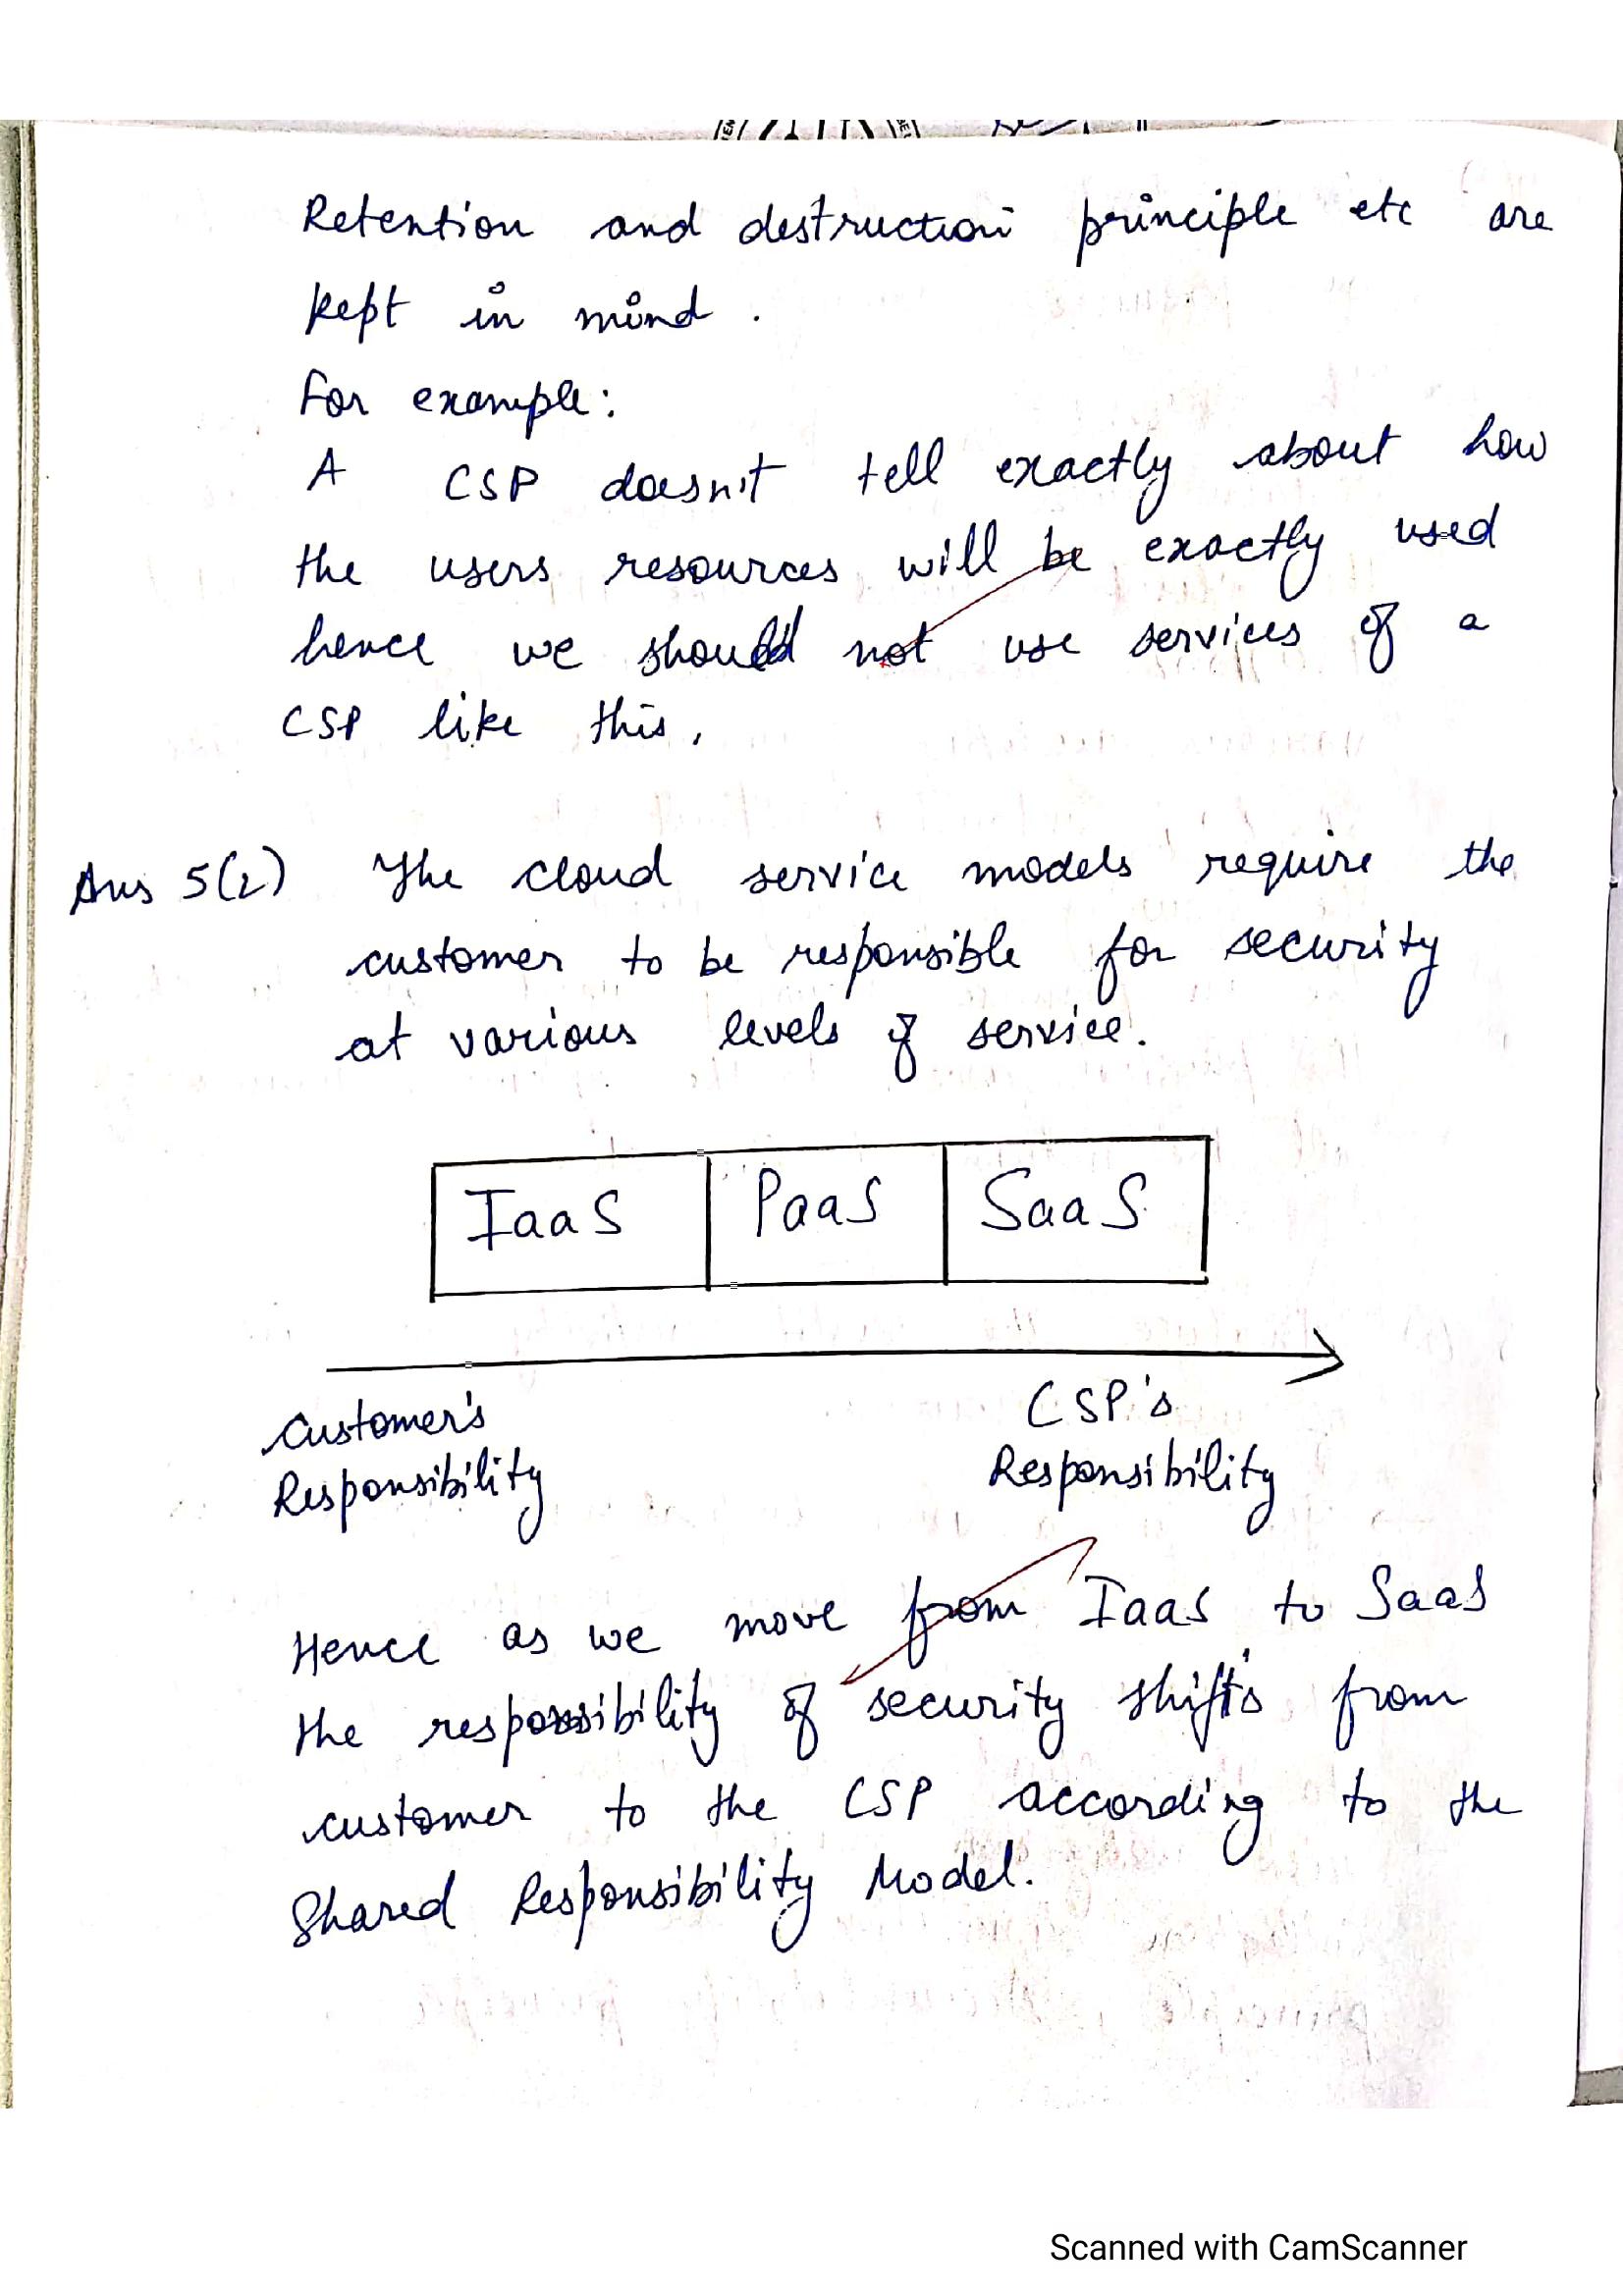 Retention and destruction principle etc are
kept in mind .
For example:
A CSP doesn't tell exactly about how
the users resources will be exactly used
hence we should not use services of a
CSP like this.
Ans 5(2) The cloud service models require the
customer to be responsible for security
at various levels of service.
IaaS PaaS SaaS
Customer's CSP's
Responsibility Responsibility
Hence as we move from IaaS to SaaS
the responsibility of security shifts from
customer to the CSP according to the
Shared Responsibility Model.
Scanned with CamScanner